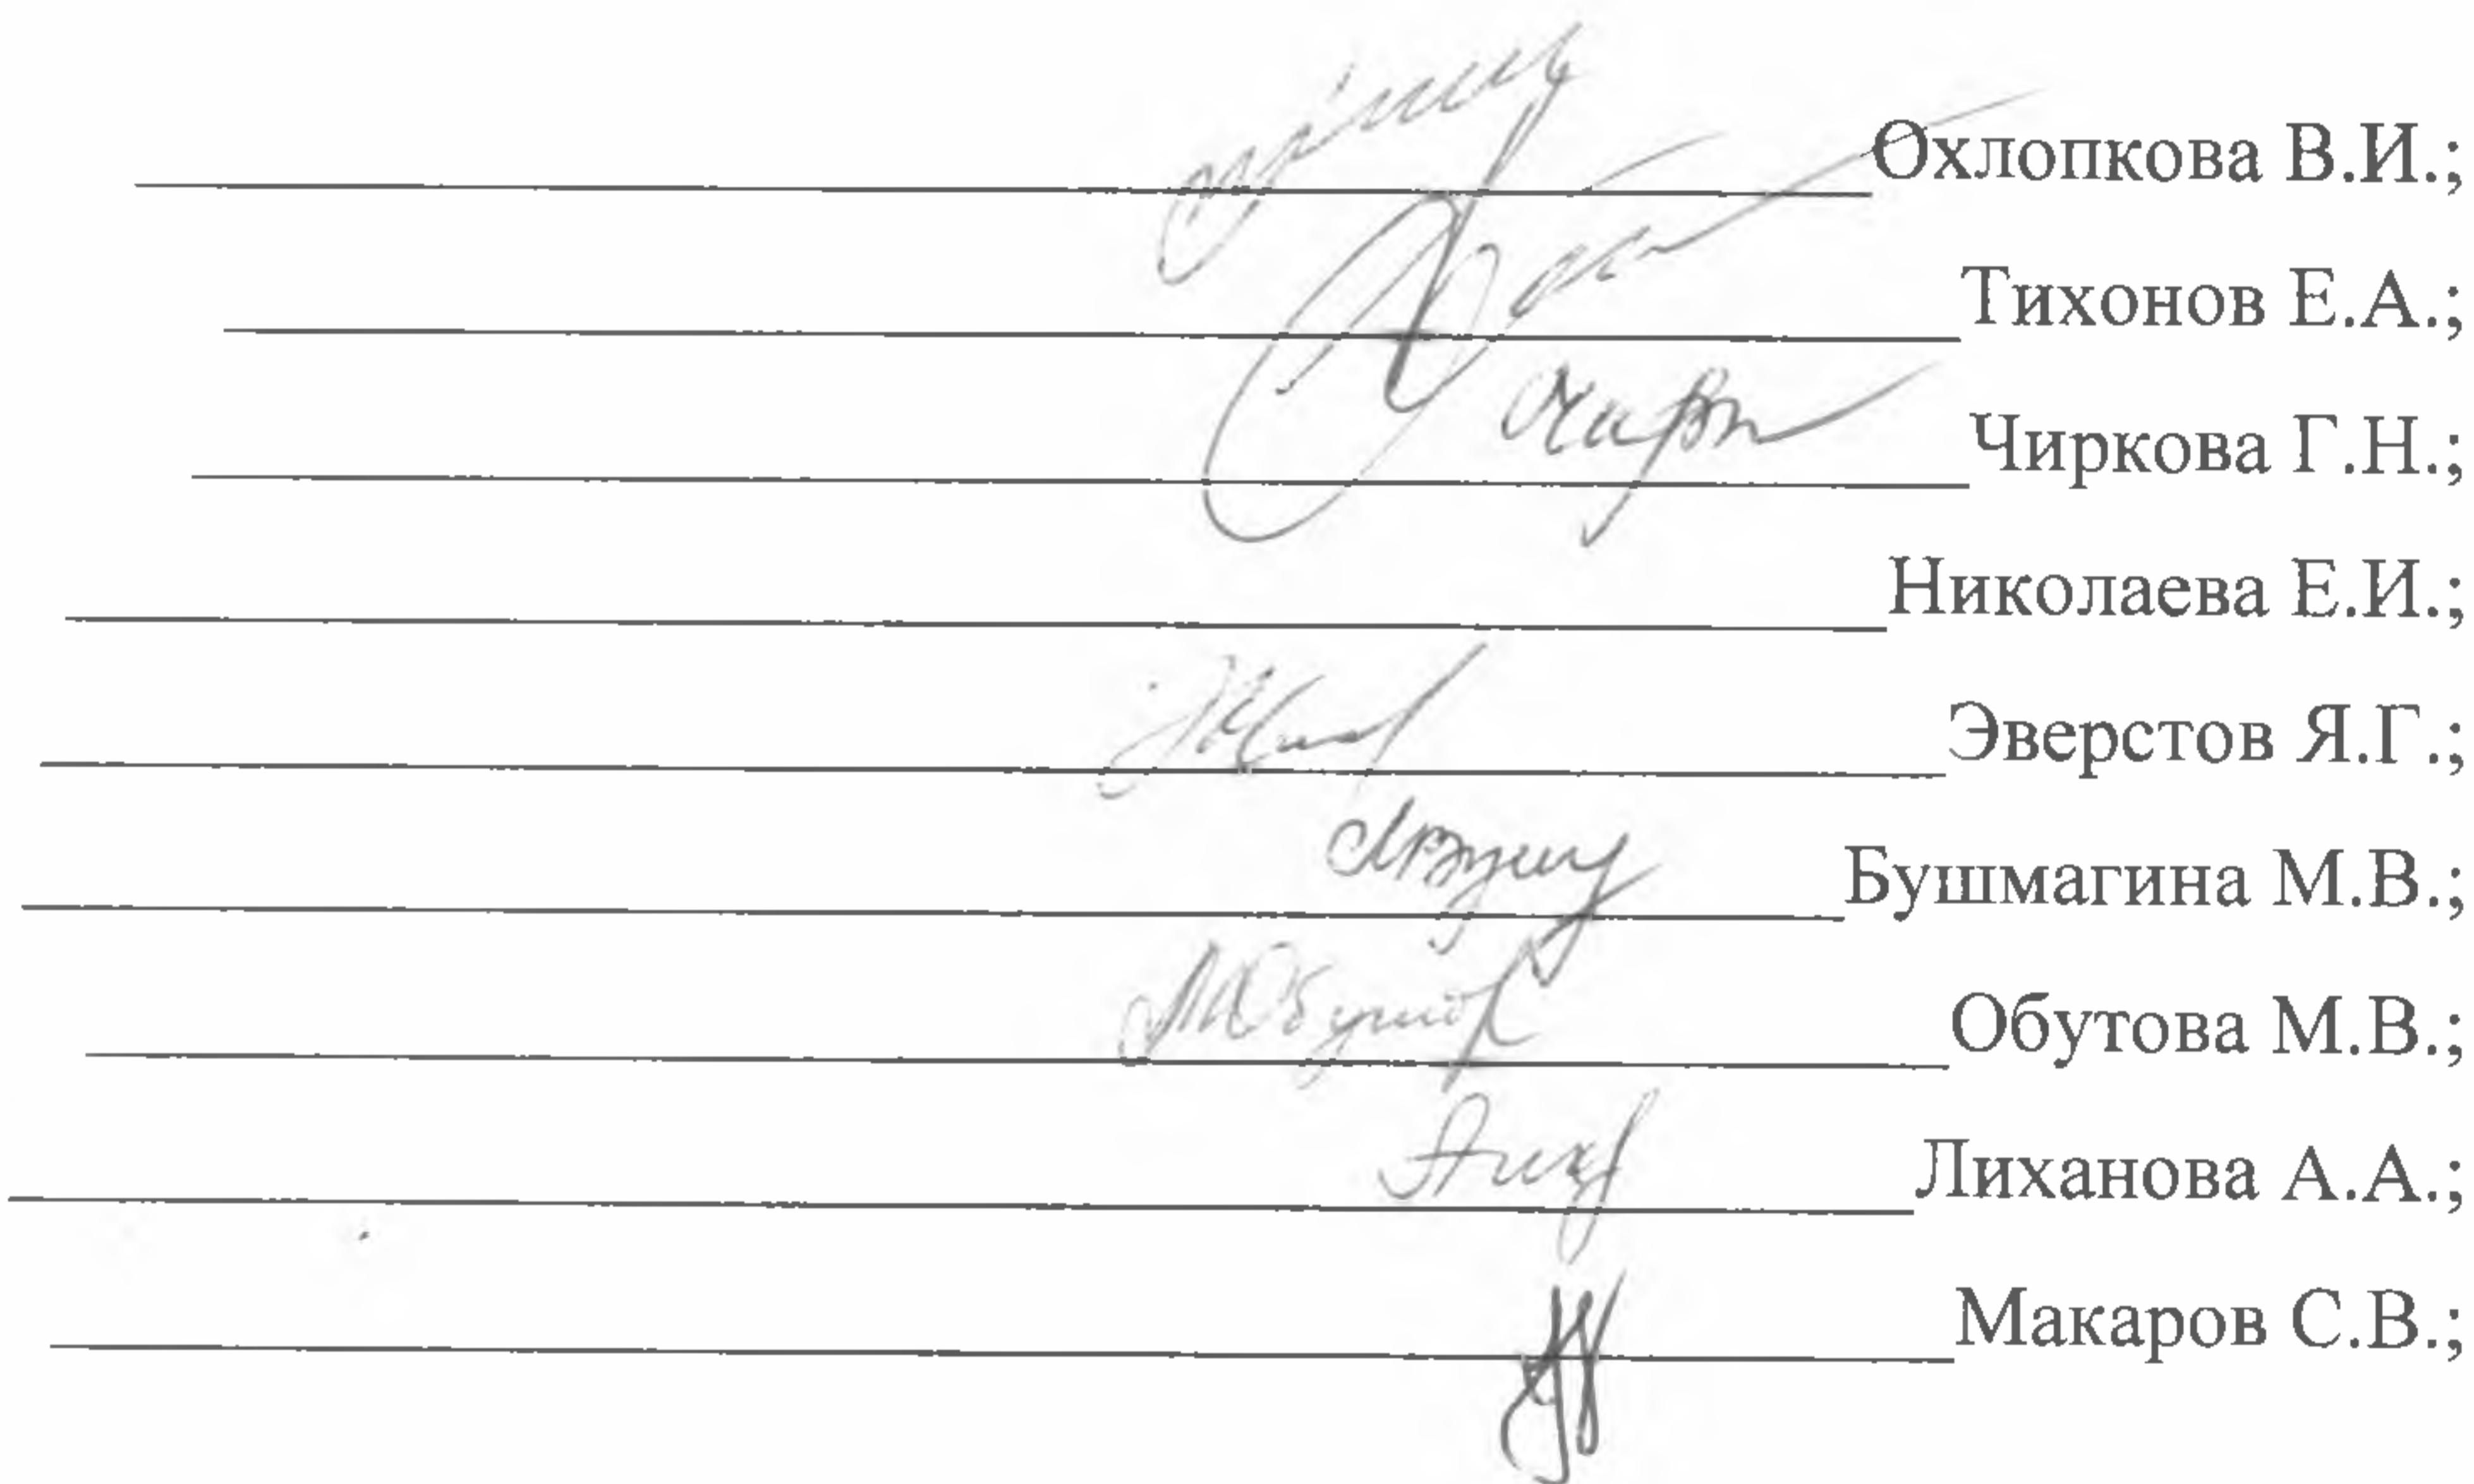 Охлопкова В.И.;
Тихонов Е.А.;
Чиркова Г.Н.;
Николаева Е.И.;
Эверстов Я.Г.;
Бушмагина М.В.;
Обутова М.В.;
Лиханова А.А.;
Макаров С.В.;